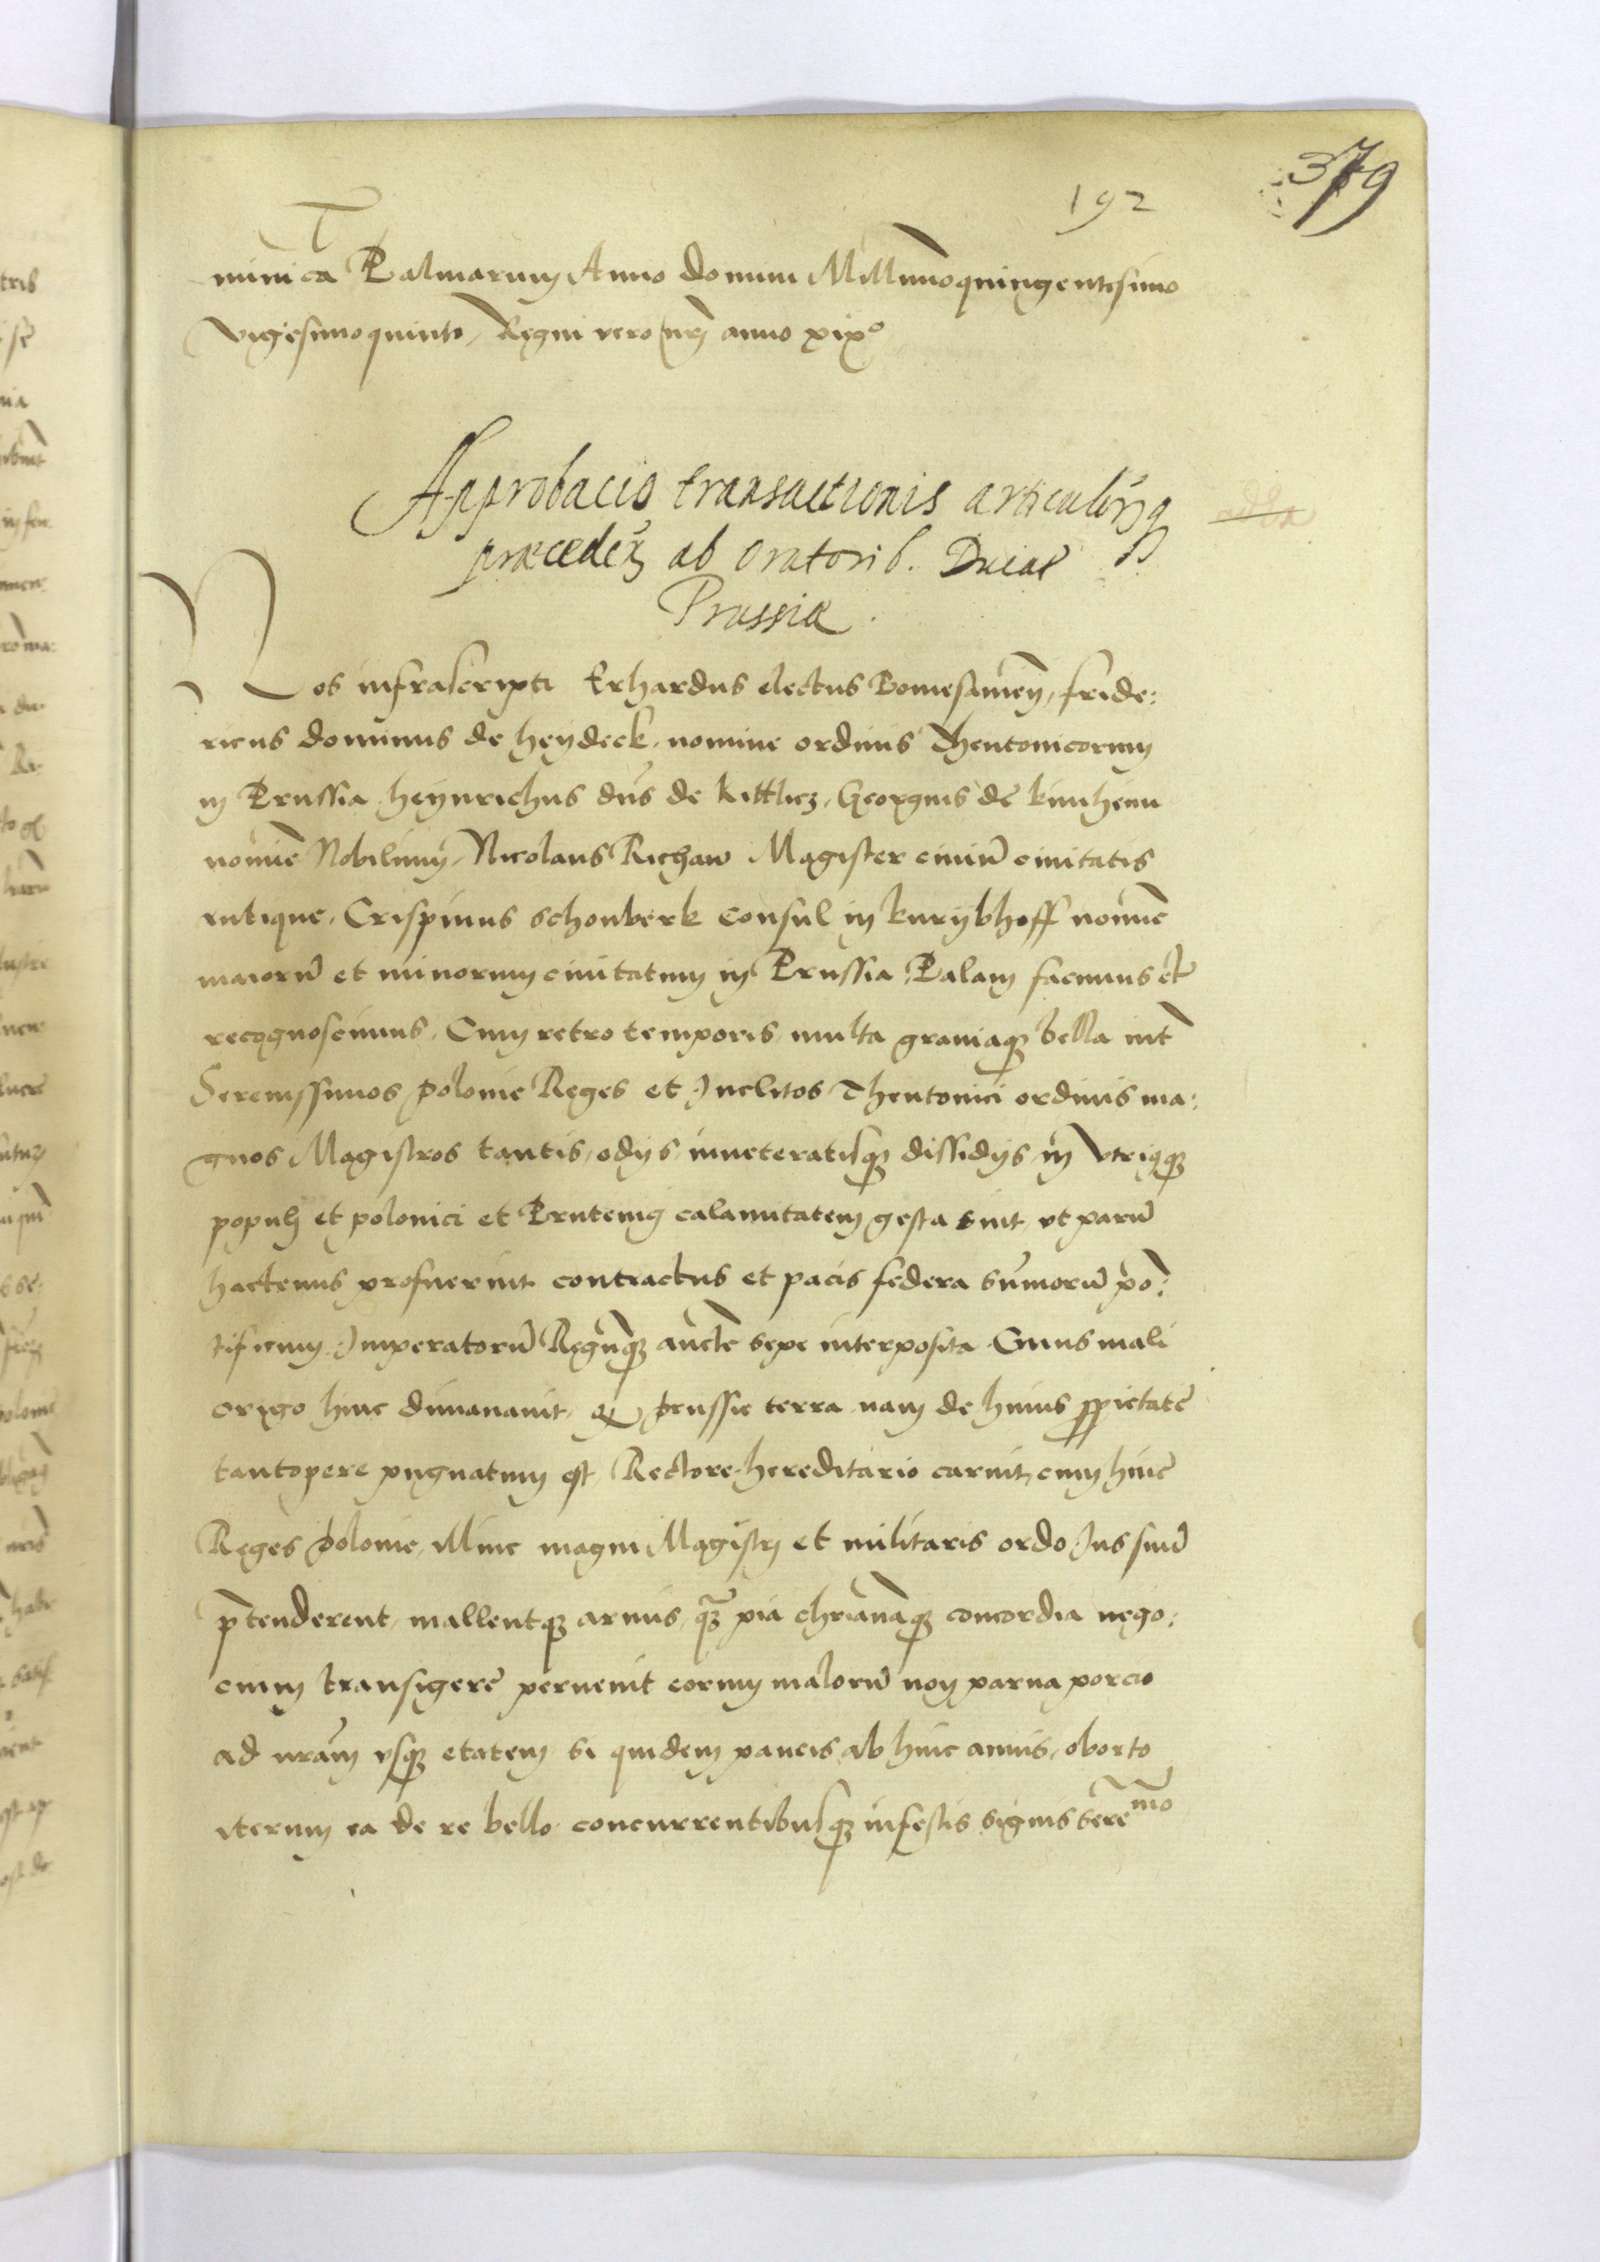 192
379
minica Palmarum Anno domini Millimoquingentesimo
vigesimoquinto, Regni vero nri anno xix°
Approbacio transactionis articulorumq
præceden ab oratorib. Ducat
Prussiæ.
Nos infrascripti Erhardus electus Pomesanien, fride:
ricus dominus de heydeck, nomine ordinis Theutonicorum
in Prussia, heynrichus dns de kittlicz, Georgius de
nomine Nobilium, Nicolaus Richaw Magister civiu civitatis
antique, Crispinus schonberk Consul in knÿbhoff nomine
maioru et minorum civitatum in Prussia, Palam facimus et
recognoscimus, Cum retro temporis multa graviaq bella int
Serenissimos polonie Reges et Inclitos Theutonici ordinis ma:
gnos Magistros tantis odijs inveteratisq dissidijs in vtriqq
populi et polonici et Prutenici calamitatem gesta sint vt paru
hactenus profuerint contractus et pacis federa sumoru po:
tificum Imperatoru Reguq aucte sepe interposita Cuius mali
origo hinc dimanavit, q prussie terra nam de huius prietate
tantopere pugnatum est, Rectore hereditario caruit, cum hinc
Reges polonie, illinc magni Magistri et militaris ordo Ius suu
ptenderent, mallentq armis, q pia chrianaq concordia nego:
cium transigere pervenit eorum maloru non parva porcio
ad nram vsq etatem si quidem paucis ab hinc annis, oborto
iterum ea de re bello concurrentibusq infestis signis Sere mo